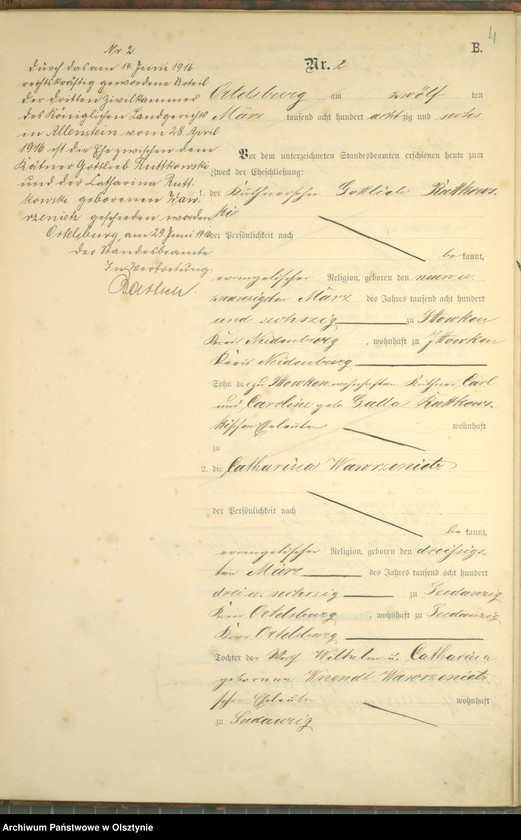 4
B.
Nr. 2
Nr. 2
Durch das am 14. Juni 1916
rechtskräftig gewordene Urteil
der dritten Zivilkammer
des Königlichen Landgerichts
in Allenstein vom 28 April
1916 ist die Ehe zwischen dem
Kätner Gottlieb Ruttkowski
und der Catharina Rutt-
kowski geborenen Waw-
rzeniek geschieden worden
Ortelsburg, am 29. Juni 1916.
Der Standesbeamte
In Vertretung:
Ortelsburg am zwölf ten
März tausend acht hundert achtzig und sechs
Vor dem unterzeichneten Standesbeamten erschienen heute zum
Zweck der Eheschließung:
1. der Käthnersohn Gottlieb Ruttkows-
ki
der Persönlichkeit nach
be kannt,
evangelischer Religion, geboren den neun u.
zwanzigsten März des Jahres tausend acht hundert
und sechszig zu Ittowken
Kreis Neidenburg, wohnhaft zu Ittowken
Kreis Neidenburg
Sohn der zu Ittowken wohnhaften Käthner Carl
und Caroline geb. Galla Ruttkows-
kischen Eheleute
wohnhaft
zu
2. die Catharina Wawrzeniek
der Persönlichkeit nach
be kannt,
evangelischer Religion, geboren den dreißigs-
ten März des Jahres tausend acht hundert
drei u. sechszig zu Seedanzig
Kreis Ortelsburg, wohnhaft zu Seedanzig
Kreis Ortelsburg
Tochter der Wilhelm u. Catharina
geborene Wawrzeniek-
schen Eheleute wohnhaft
zu Seedanzig
Archiwum Państwowe w Olsztynie